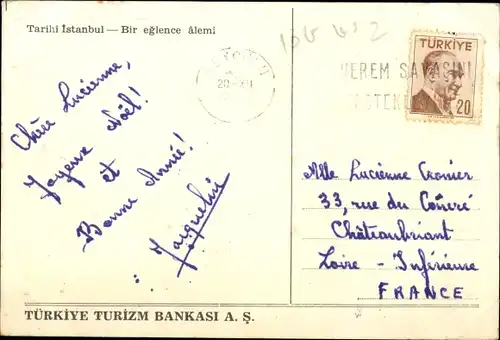 Tarihî İstanbul — Bir eğlence âlemi
Chère Lucienne,
Joyeux Noël!
et
Bonne Année!
Jacqueline
TÜRKİYE
20
20-XII
VEREM SAVAŞINI
DESTEKLE
Mlle Lucienne Cronier
33, rue du
Châteaubriant
Loire - Inférieure
FRANCE
TÜRKİYE TURİZM BANKASI A. Ş.